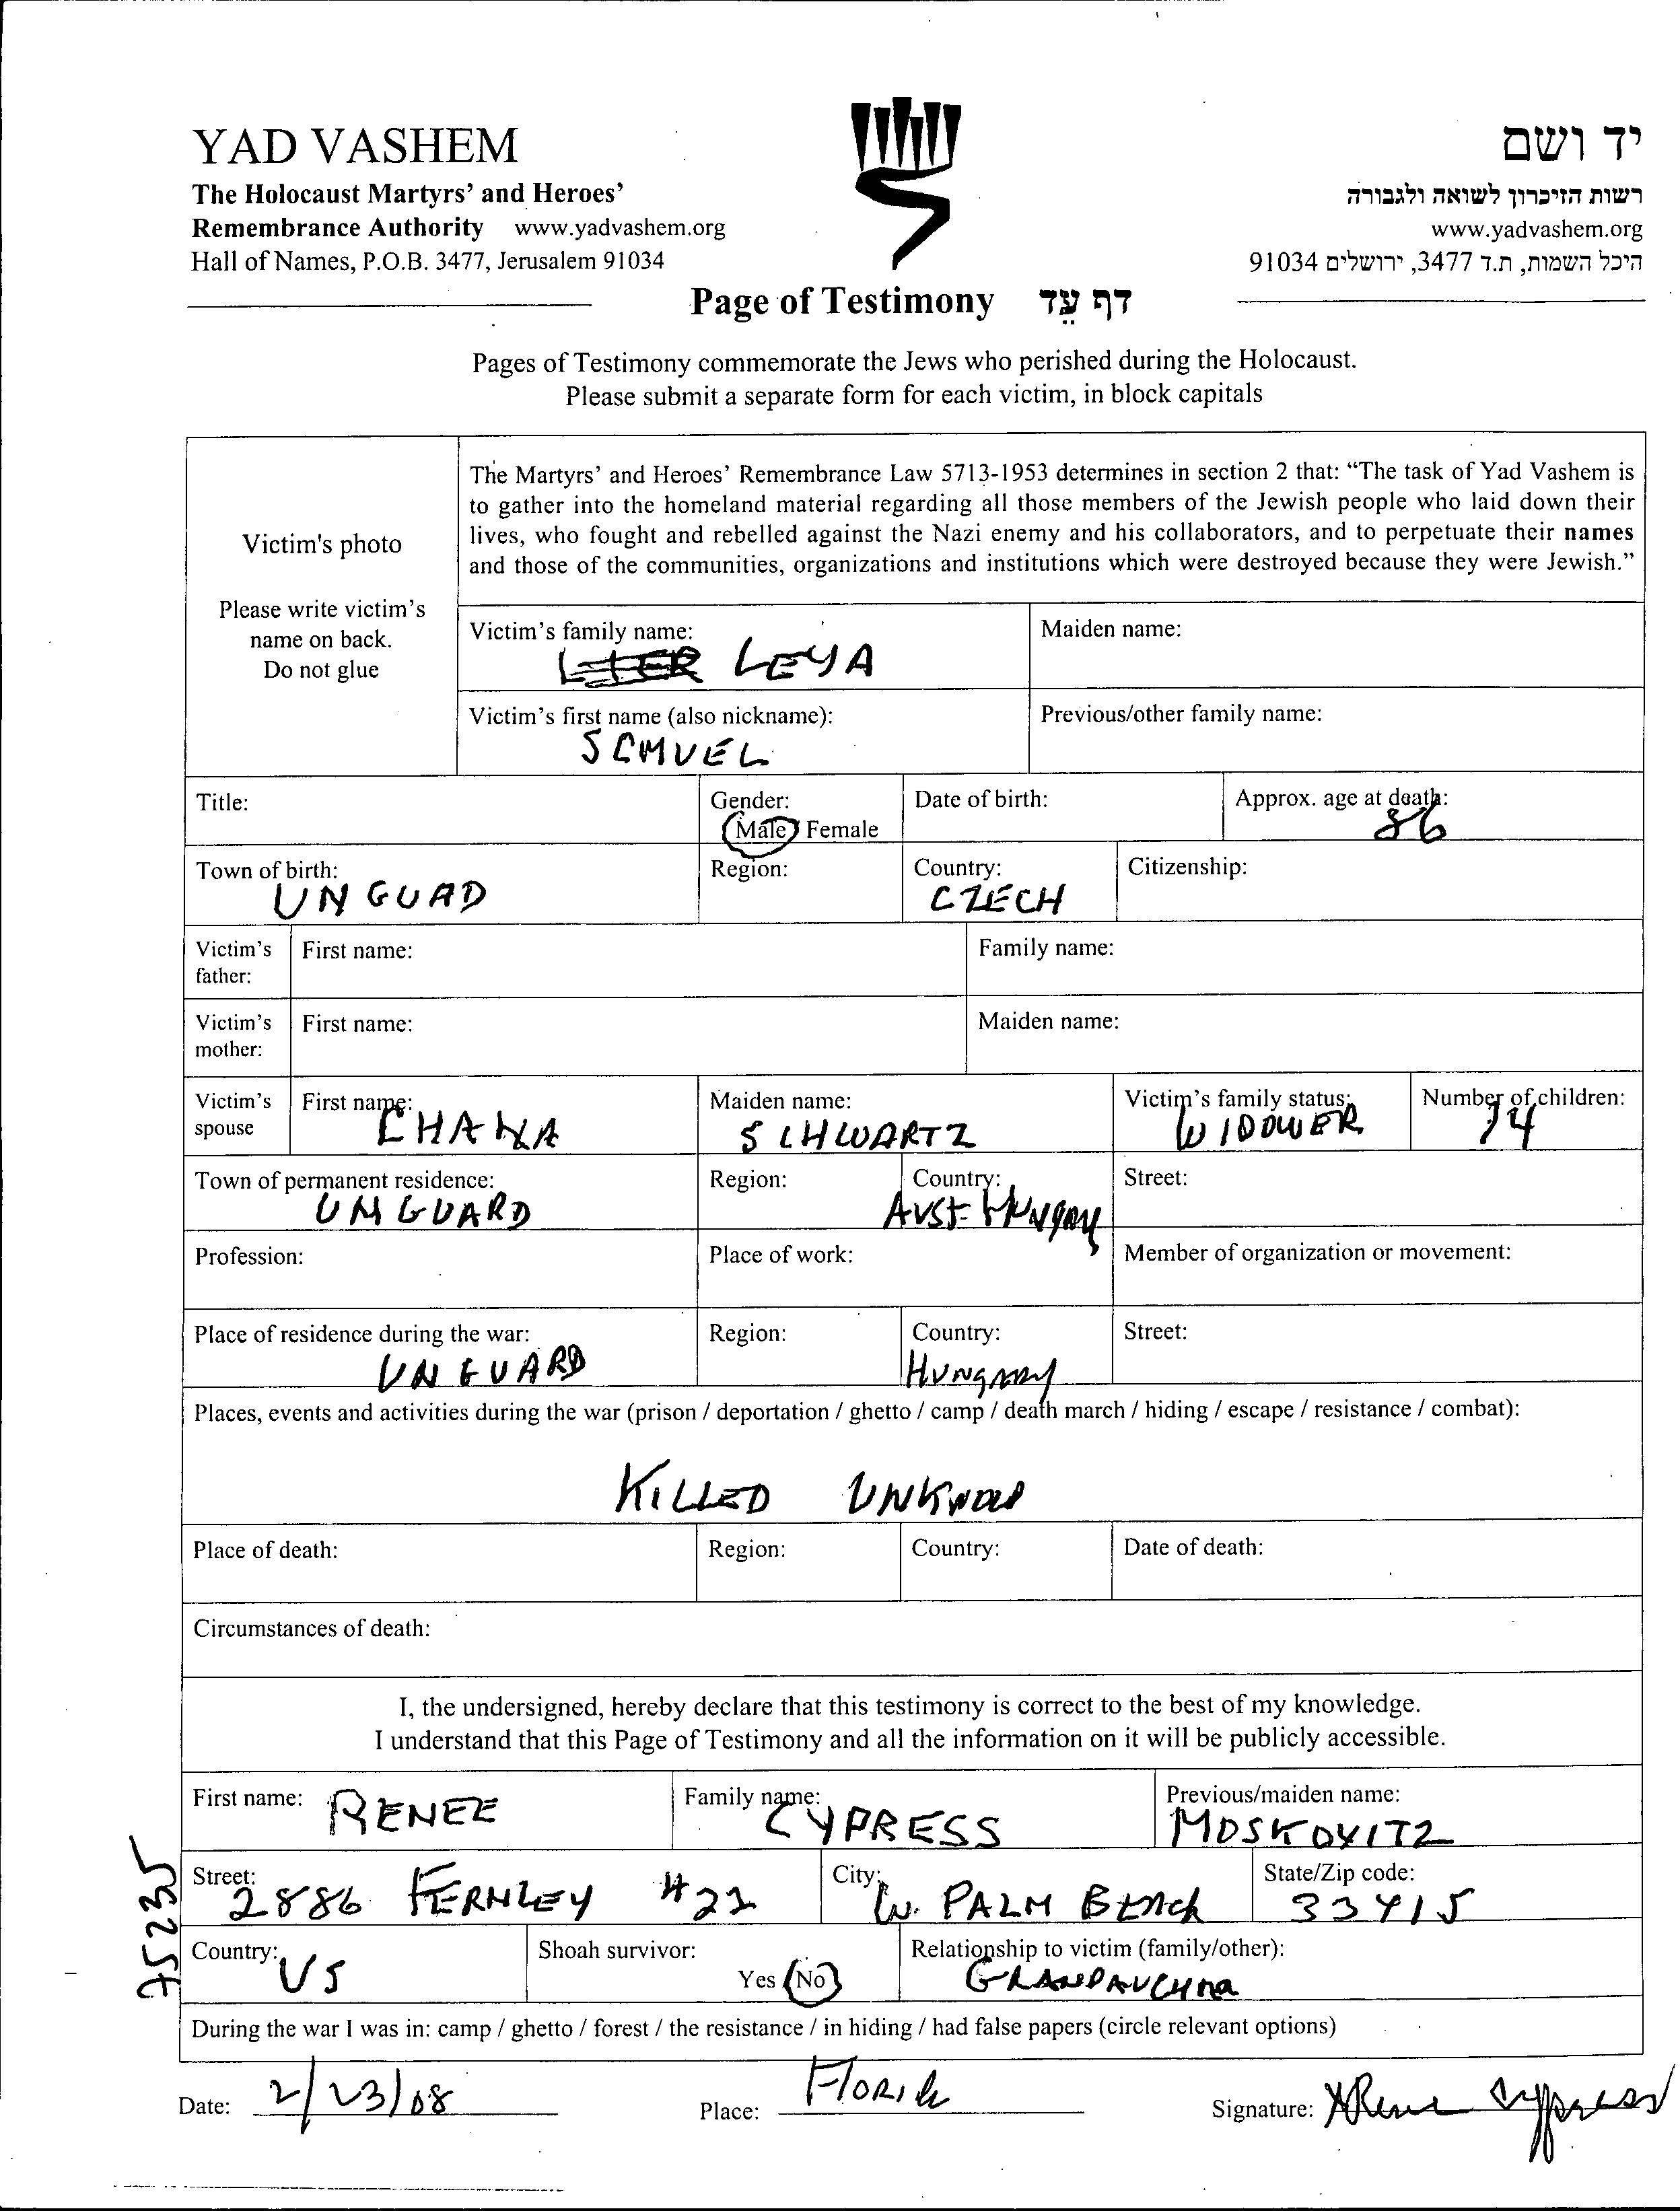 YAD VASHEM
The Holocaust Martyrs' and Heroes'
Remembrance Authority www.yadvashem.org
Hall of Names, P.O.B. 3477, Jerusalem 91034
יד ושם
רשות הזיכרון לשואה ולגבורה
www.yadvashem.org
היכל השמות, ת.ד 3477, ירושלים 91034
Page of Testimony דף עֵד
Pages of Testimony commemorate the Jews who perished during the Holocaust.
Please submit a separate form for each victim, in block capitals
Victim's photo
Please write victim's
name on back.
Do not glue
The Martyrs' and Heroes' Remembrance Law 5713-1953 determines in section 2 that: "The task of Yad Vashem is
to gather into the homeland material regarding all those members of the Jewish people who laid down their
lives, who fought and rebelled against the Nazi enemy and his collaborators, and to perpetuate their names
and those of the communities, organizations and institutions which were destroyed because they were Jewish."
Victim's family name: LEYA
Maiden name:
Victim's first name (also nickname): SCMUEL
Previous/other family name:
Title:
Gender: Male / Female
Date of birth:
Approx. age at death: 86
Town of birth: UNGUAD
Region:
Country: CZECH
Citizenship:
Victim's father: First name:
Family name:
Victim's mother: First name:
Maiden name:
Victim's spouse First name: CHANA
Maiden name: SCHWARTZ
Victim's family status: WIDOWER
Number of children: 14
Town of permanent residence: UNGUARD
Region:
Country: AUST-HUNGARY
Street:
Profession:
Place of work:
Member of organization or movement:
Place of residence during the war: UNGUARD
Region:
Country: HUNGARY
Street:
Places, events and activities during the war (prison / deportation / ghetto / camp / death march / hiding / escape / resistance / combat):
KILLED UNKNOW
Place of death:
Region:
Country:
Date of death:
Circumstances of death:
I, the undersigned, hereby declare that this testimony is correct to the best of my knowledge.
I understand that this Page of Testimony and all the information on it will be publicly accessible.
First name: RENEE
Family name: CYPRESS
Previous/maiden name: MOSKOVITZ
Street: 2886 FERNLEY #22
City: W. PALM BEACH
State/Zip code: 33415
75235
Country: US
Shoah survivor: Yes / No
Relationship to victim (family/other):
During the war I was in: camp / ghetto / forest / the resistance / in hiding / had false papers (circle relevant options)
Date: 2/23/08
Place: FLORIDA
Signature: X Renee Cypress